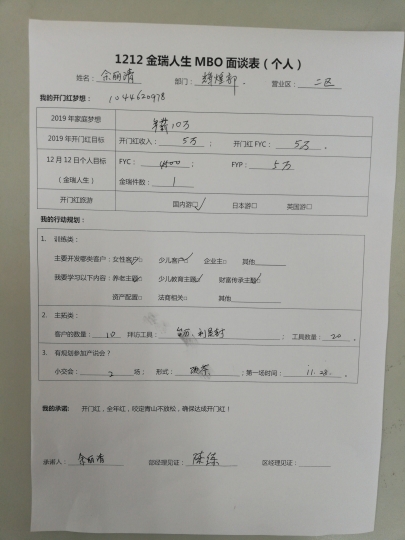 1212 金瑞人生 MBO 面谈表（个人）
姓名： 余丽清 部门： 辉煌部 营业区： 二区
我的开门红梦想： 1044620978
2019 年家庭梦想 年薪10万
2019 年开门红目标 开门红收入： 5万 ； 开门红 FYC： 5万 .
12 月 12 日个人目标 FYC： 4500 ； FYP： 5万
（金瑞人生） 金瑞件数： 1
开门红旅游 国内游□✓ 日本游□ 英国游□
我的行动规划：
1. 训练类：
主要开发哪类客户：女性客户□✓ 少儿客户□✓ 企业主□ 其他
我要学习以下内容：养老主题□✓ 少儿教育主题□✓ 财富传承主题□✓
资产配置□ 法商相关□ 其他
2. 主拓类：
客户的数量： 10 拜访工具： 台历、利是封 ；工具数量： 20 .
3. 有规划参加产说会？
小交会： 2 场； 形式： ；第一场时间： 11.28 .
我的承诺： 开门红，全年红，咬定青山不放松，确保达成开门红！
承诺人： 余丽清 部经理见证： 区经理见证：